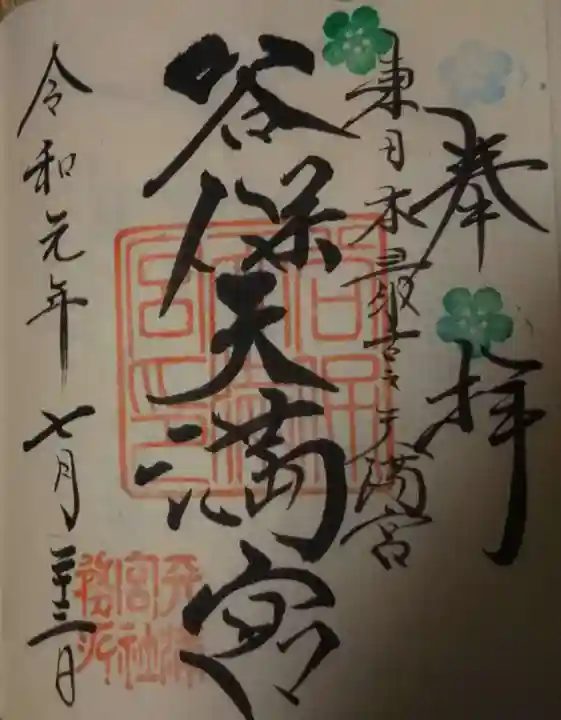 奉拝
東日本最古之天満宮
谷保天満宮
谷保天満宮印
天満宮社務所
令和元年七月二十三日